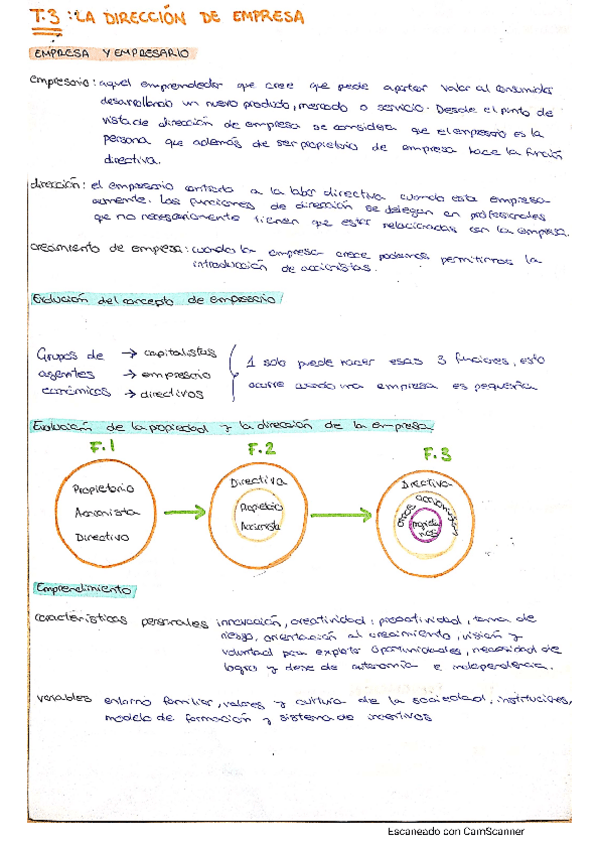 T.3: LA DIRECCIÓN DE EMPRESA
EMPRESA Y EMPRESARIO
empresario: aquel emprendedor que cree que puede aportar valor al consumidor
desarrollando un nuevo producto, mercado o servicio. Desde el punto de
vista de dirección de empresa se considera que el empresario es la
persona que además de ser propietario de empresa hace la función
directiva.
dirección: el empresario contrata a la labor directiva cuando esta empresa
aumente. Las funciones de dirección se delegan en profesionales
que no necesariamente tienen que estar relacionadas con la empresa.
crecimiento de empresa: cuando la empresa crece podemos permitirnos la
introducción de accionistas.
Evolución del concepto de empresario
Grupos de → capitalistas
agentes → empresario
económicos → directivos
1 solo puede hacer esas 3 funciones, esto
ocurre cuando una empresa es pequeña
Evolución de la propiedad y la dirección de la empresa
F.1 F.2 F.3
Propietario
Accionista
Directivo
Directiva
Propietario
Accionista
Directiva
otros accionistas
Emprendimiento
características personales innovación, creatividad, proactividad, toma de
riesgo, orientación al crecimiento, visión y
voluntad para explotar oportunidades, necesidad de
logro y deseo de autonomía e independencia.
variables entorno familiar, valores y cultura de la sociedad, instituciones,
modelo de formación y sistema de incentivos
Escaneado con CamScanner